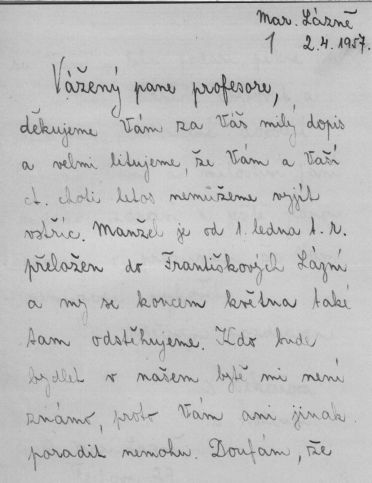 Mar. Lázně
1 2.4.1957.
Vážený pane profesore,
děkujeme Vám za Váš milý dopis
a velmi litujeme, že Vám a Vaší
ct. choti letos nemůžeme vyjít
vstříc. Manžel je od 1. ledna t. r.
přeložen do Františkových Lázní
a my se koncem května také
tam odstěhujeme. Kdo bude
bydlet v našem bytě mi není
známo, proto Vám ani jinak
poradit nemohu. Doufám, že